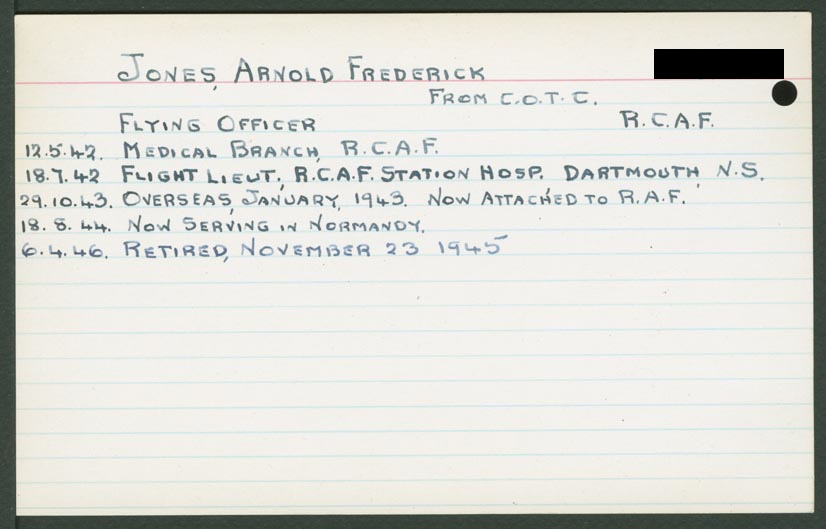 JONES, ARNOLD FREDERICK
FROM C.O.T.C.
FLYING OFFICER R.C.A.F.
12.5.42. MEDICAL BRANCH, R.C.A.F.
18.7.42 FLIGHT LIEUT., R.C.A.F. STATION HOSP. DARTMOUTH, N.S.
29.10.43. OVERSEAS, JANUARY, 1943. NOW ATTACHED TO R.A.F.
18.8.44. NOW SERVING IN NORMANDY.
6.4.46. RETIRED, NOVEMBER 23 1945